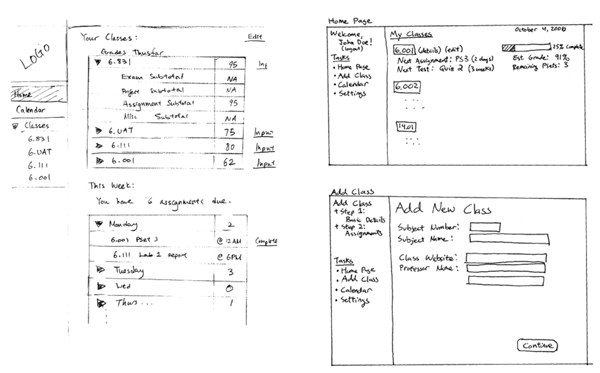 LOGO
Home
Calendar
Classes
6.831
6.UAT
6.111
6.001
Your Classes: Edit
Grades Thusfar
6.831 95 Inp
Exam Subtotal NA
Project Subtotal NA
Assignment Subtotal 95
Misc Subtotal NA
6.UAT 75 Input
6.111 80 Input
6.001 62 Input
This Week:
You have 6 assignments due.
Monday 2
6.001 PSet 3 @ 12AM Complete
6.111 Lab 1 Report @ 6PM
Tuesday 3
Wed 0
Thurs... 1
Home Page
Welcome,
John Doe!
(logout)
Tasks
• Home Page
• Add Class
• Calendar
• Settings
My Classes October 4, 2008
6.001 (details) (edit) 25% Complete
Next Assignment: PS3 (2 days) Est. Grade: 91%
Next Test: Quiz 2 (3 weeks) Remaining Psets: 3
6.002
14.01
Add Class
Add Class
• Step 1:
Basic Details
• Step 2:
Assignments
Tasks
• Home Page
• Add Class
• Calendar
• Settings
Add New Class
Subject Number:
Subject Name:
Class Website:
Professor Name:
Continue